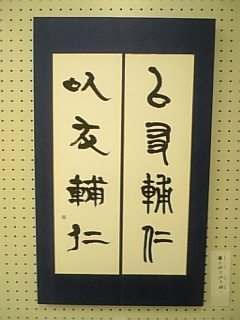 㠯友輔仁
以友輔仁